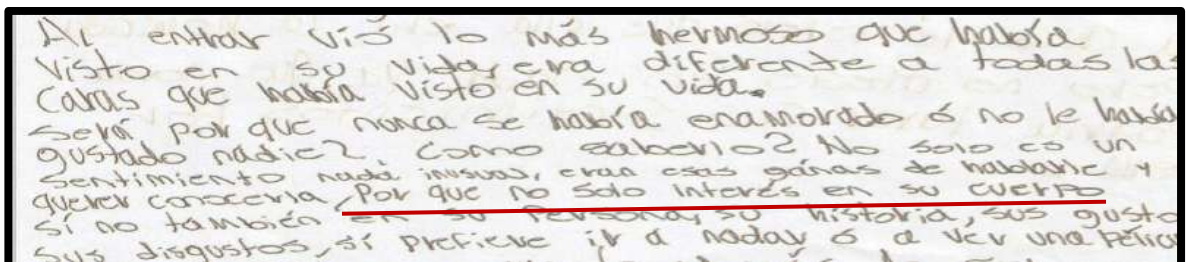 Al entrar vió lo más hermoso que había
visto en su vida, era diferente a todas las
caras que había visto en su vida.
Será por que nunca se había enamorado ó no le había
gustado nadie?, como saberlo? No solo es un
sentimiento nada inusual, eran esas ganas de hablarle y
querer conocerla, Por que no solo interés en su cuerpo
sí no también en su persona, su historia, sus gusto
sus disgustos, sí prefiere ir a nadar ó a ver una pelicu